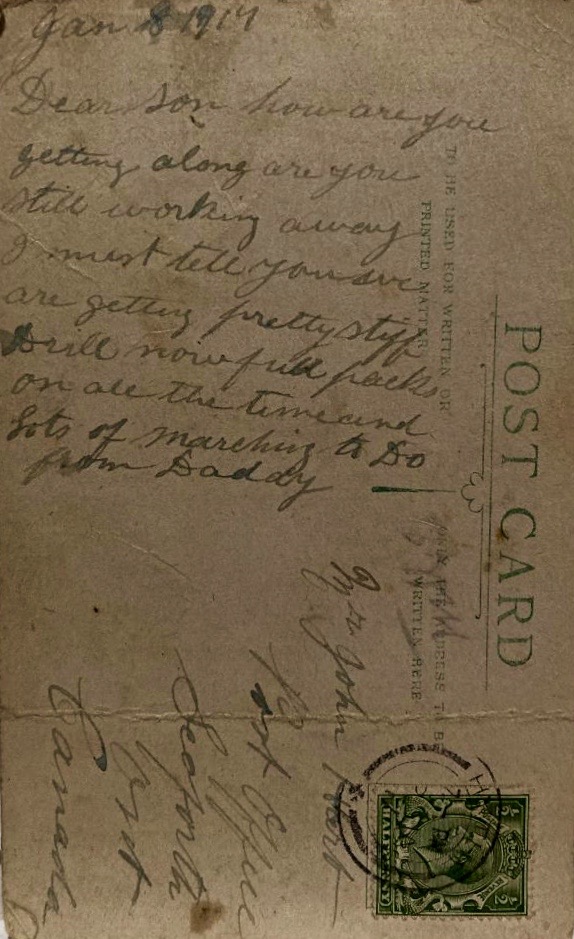 Jan 8 1917
Dear son how are you
getting along are you
still working away
I must tell you we
are getting pretty stiff
Drill now full packs
on all the time and
lots of marching to Do
from Daddy
POST CARD
TO BE USED FOR WRITTEN OR
PRINTED MATTER
ONLY THE ADDRESS TO BE
WRITTEN HERE
John
Post Office
Seaforth
Ont
Canada
HALFPENNY